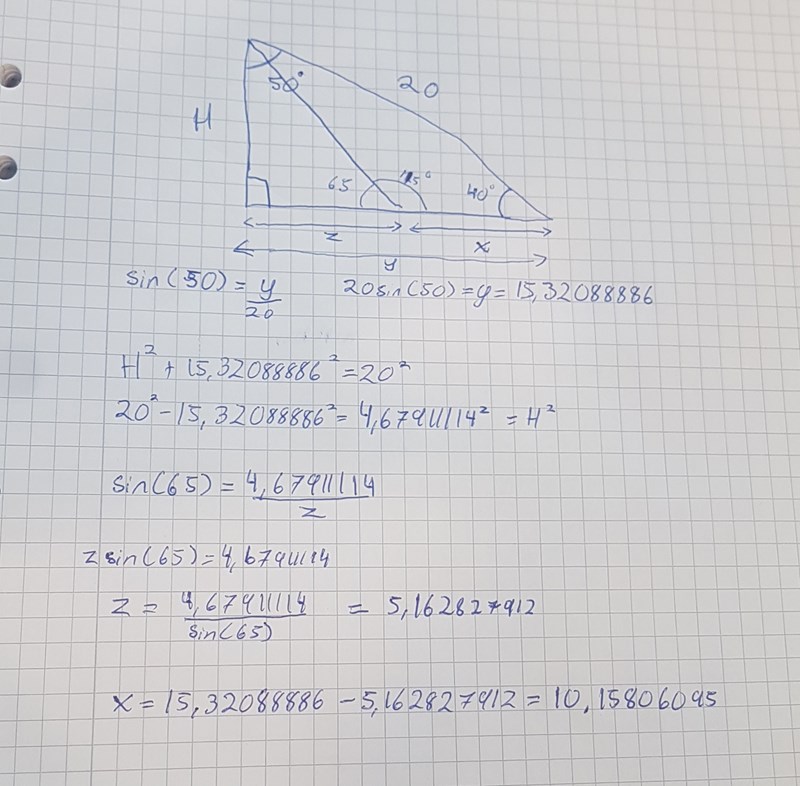 50°
20
H
65 115° 40°
z x
y
sin(50) = y/20 20sin(50) = y = 15,32088886
H² + 15,32088886² = 20²
20² - 15,32088886² = 4,67911114² = H²
sin(65) = 4,67911114/z
z sin(65) = 4,67911114
z = 4,67911114/sin(65) = 5,162827912
x = 15,32088886 - 5,162827912 = 10,15806095